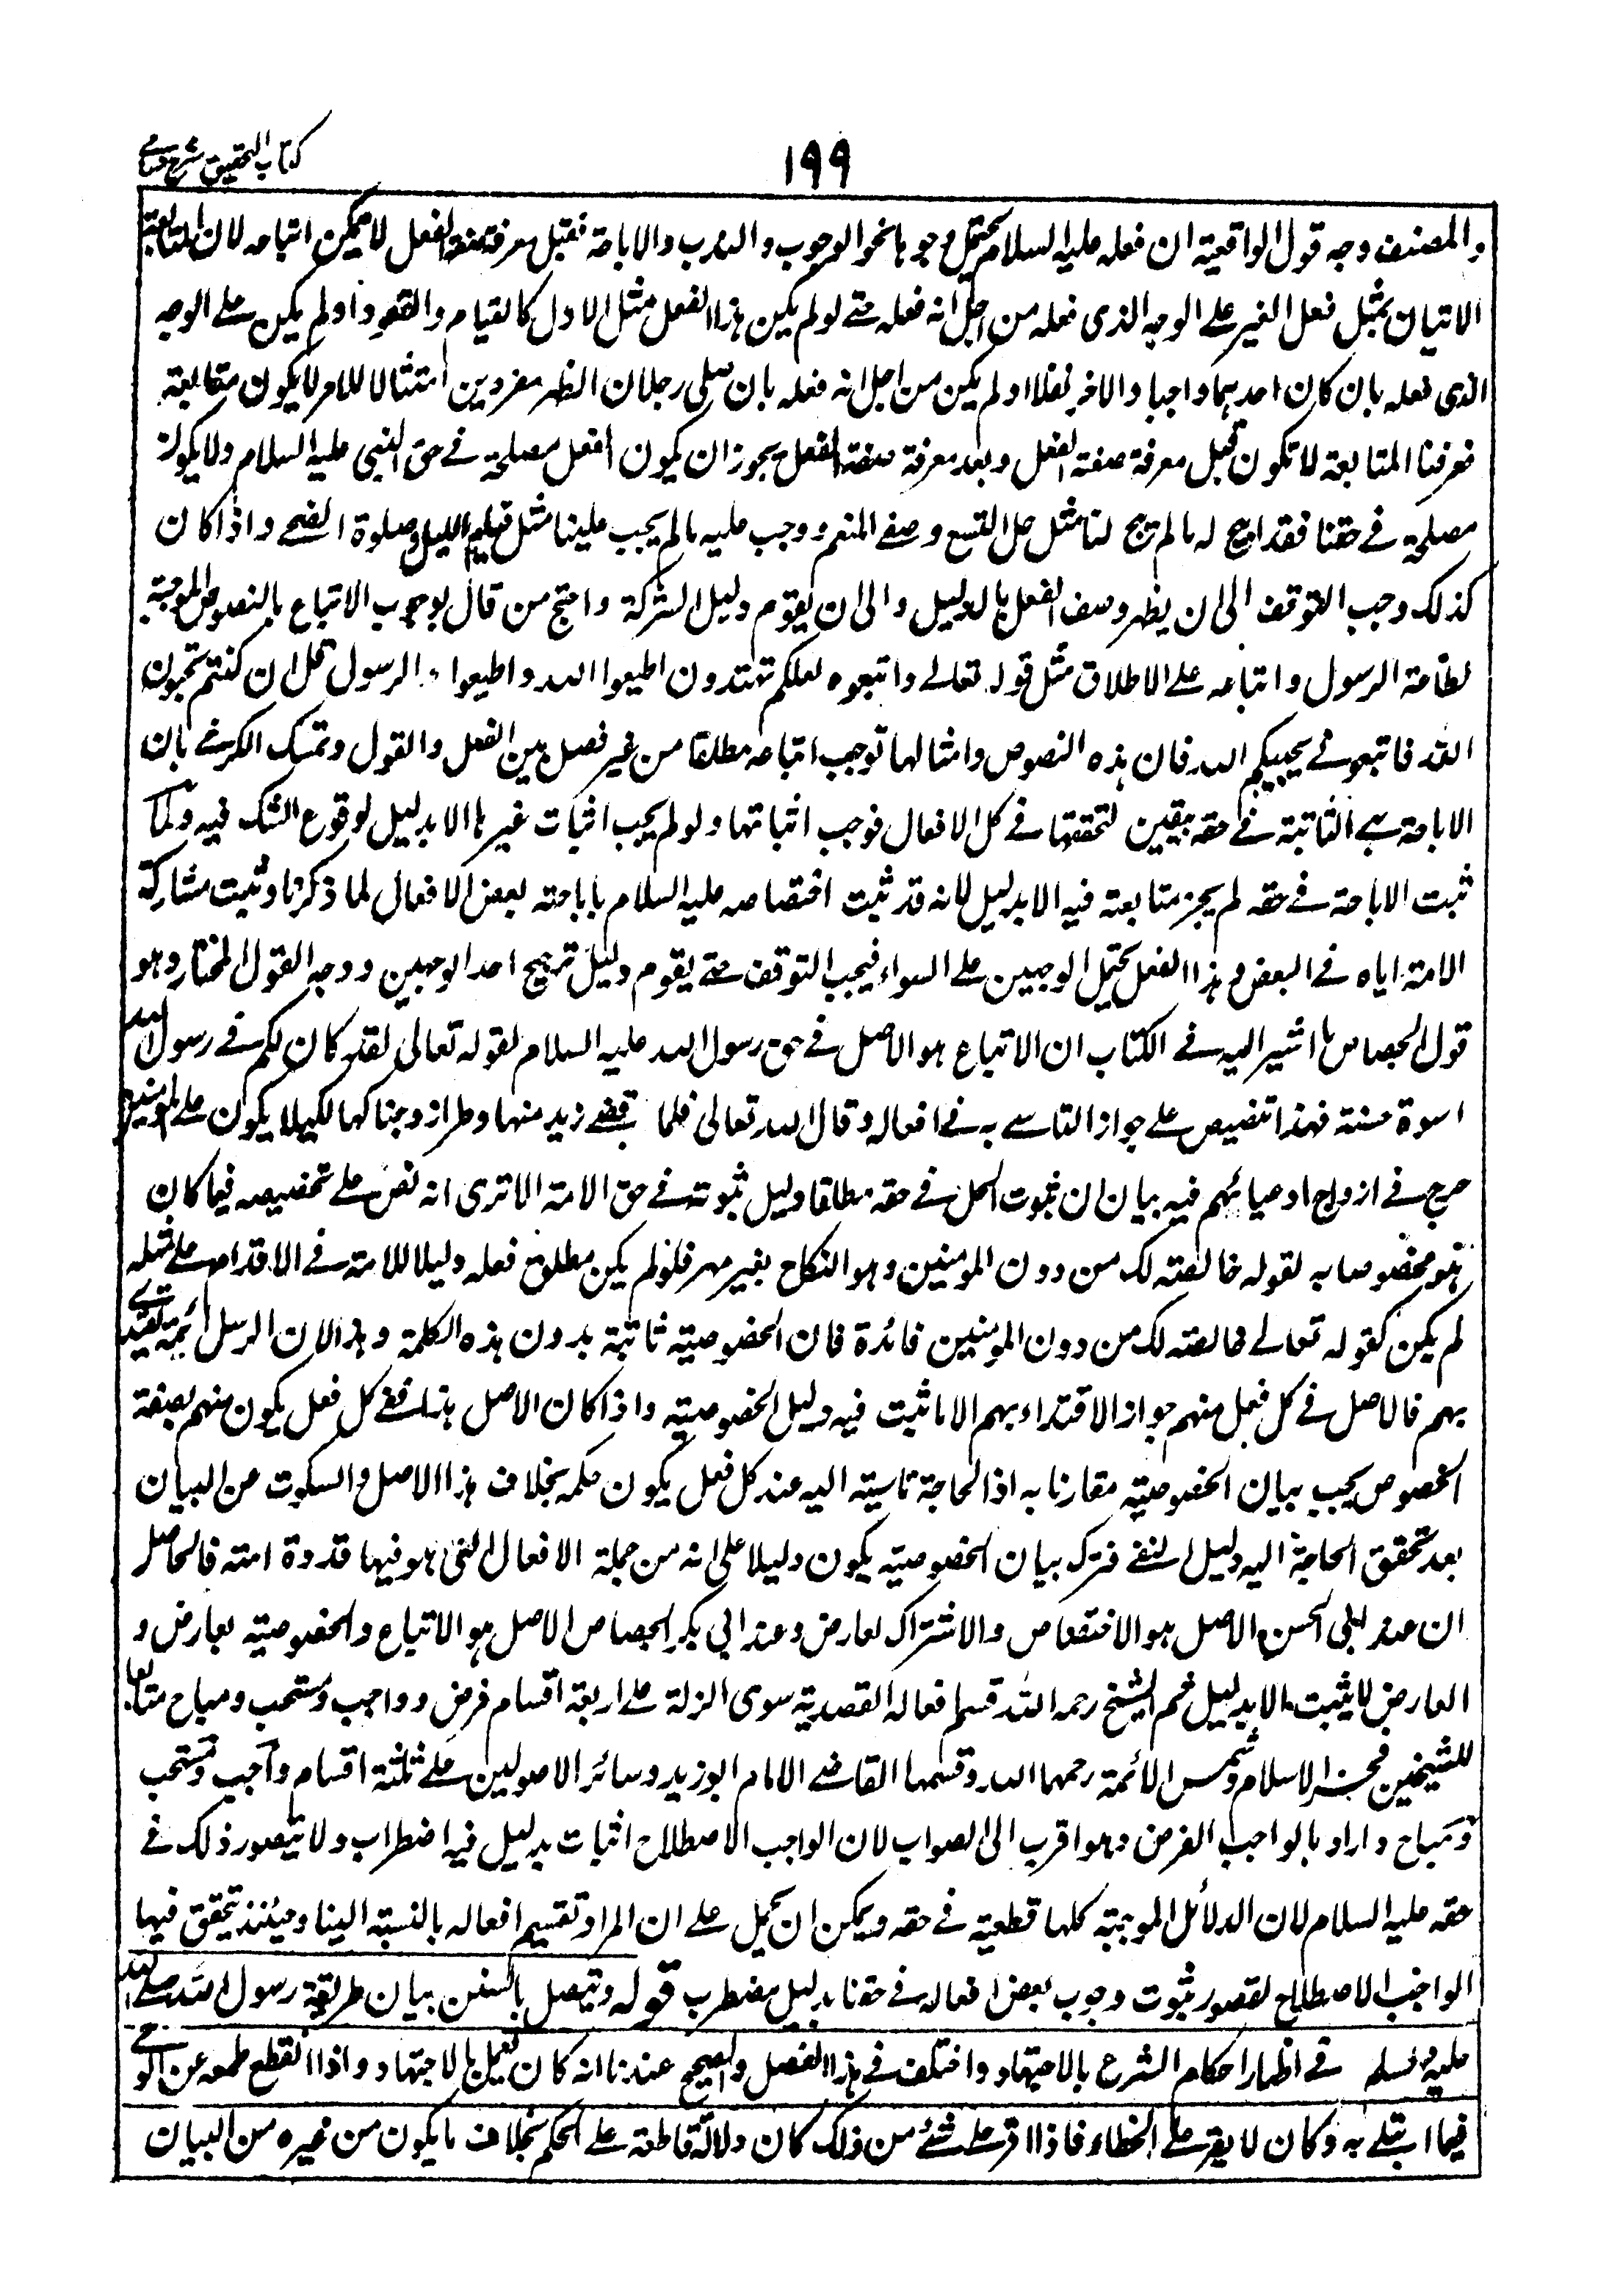 كتاب التحقيق شرح حسامي
١٩٩
والمصنف وجه قول الواقفية ان فعله عليه السلام يحتمل وجوها نحو الوجوب والندب والاباحة فقبل معرفة صفة الفعل لا يمكن اتباعه لان المتابعة
الاتيان بمثل فعل الغير على الوجه الذى فعله من اجل انه فعله حتى لو لم يكن هذا الفعل مثل الاول كالقيام والقعود او لم يكن على الوجه
الذى فعله بان كان احدهما واجبا والاخر نفلا او لم يكن من اجل انه فعله بان صلى رجلان الظهر مفردين امتثالا للامر لا يكون متابعة
فعرفنا المتابعة لا تكون قبل معرفة صفته الفعل وبعد معرفة صفة الفعل يجوز ان يكون الفعل مصلحة فى حق النبى عليه السلام ولا يكون
مصلحة فى حقنا فقد ابيح له ما لم يبح لنا مثل حل التسع وصفى المغنم ووجب عليه ما لم يجب علينا مثل قيام الليل وصلوة الضحى واذا كان
كذلك وجب التوقف الى ان يظهر وصف الفعل بالدليل والى ان يقوم دليل الشركة واحتج من قال بوجوب الاتباع بالنصوص الموجبة
لطاعة الرسول واتباعه على الاطلاق مثل قوله تعالى واتبعوه لعلكم تهتدون اطيعوا الله واطيعوا الرسول قل ان كنتم تحبون
الله فاتبعونى يحببكم الله فان هذه النصوص وامثالها توجب اتباعه مطلقا من غير فصل بين الفعل والقول وتمسك الكرخى بان
الاباحة هى الثابتة فى حقه بيقين لتحققها فى كل الافعال فوجب اثباتها ولو لم يجب اثبات غيرها الا بدليل لوقوع الشك فيه ولما
ثبت الاباحة فى حقه لم يجز متابعته فيه الا بدليل لانه قد ثبت اختصاصه عليه السلام باباحته بعض الافعال لما ذكرنا وثبت مشاركة
الامة اياه فى البعض وهذا الفعل يحتمل الوجهين على السواء فيجب التوقف حتى يقوم دليل ترجيح احد الوجهين ووجه القول المختار وهو
قول الجصاص ما اشير اليه فى الكتاب ان الاتباع هو الاصل فى حق رسول الله عليه السلام لقوله تعالى لقد كان لكم فى رسول الله
اسوة حسنة فهذا تنصيص على جواز التاسى به فى افعاله وقال الله تعالى فلما قضى زيد منها وطرا زوجناكها لكيلا يكون على المؤمنين
حرج فى ازواج ادعيائهم فيه بيان ان ثبوت الحل فى حقه مطلقا دليل ثبوته فى حق الامة الا ترى انه نص على تخصيصه فيما كان
هو مخصوصا به لقوله خالصة لك من دون المومنين وهو النكاح بغير مهر فلو لم يكن مطلق فعله دليلا للامة فى الاقدام على مثله
لم يكن لقوله تعالى خالصة لك من دون المومنين فائدة فان الخصوصية ثابتة بدون هذه الكلمة وهذا لان الرسل ائمة يقتدى
بهم فالاصل فى كل فعل منهم جواز الاقتداء بهم الا ما ثبت فيه دليل الخصوصية واذا كان الاصل هذا ففى كل فعل يكون منهم بصفة
الخصوص يجب بيان الخصوصية مقارنا به اذ الحاجة ماسة اليه عند كل فعل يكون حكمه بخلاف هذا الاصل والسكوت عن البيان
بعد تحقق الحاجة اليه دليل النفى فترك بيان الخصوصية يكون دليلا على انه من جملة الافعال التى هو فيها قدوة امته فالحاصل
ان عند ابى الحسن الاصل هو الاختصاص والاشتراك لعارض وعند ابى بكر الجصاص الاصل هو الاتباع والخصوصية لعارض و
العارض لا يثبت الا بدليل ثم الشيخ رحمه الله قسم افعاله القصدية سوى الزلة على اربعة اقسام فرض وواجب ومستحب ومباح متابعا
للشيخين فخر الاسلام وشمس الائمة رحمهما الله وقسمها القاضى الامام ابو زيد وسائر الاصوليين على ثلثة اقسام واجب ومستحب
ومباح واراد بالواجب الفرض وهو اقرب الى الصواب لان الواجب الاصطلاحى اثبات بدليل فيه اضطراب ولا يتصور ذلك فى
حقه عليه السلام لان الدلائل الموجبة كلها قطعية فى حقه ويمكن ان يحمل على ان المراد تقسيم افعاله بالنسبة الينا وحينئذ يتحقق فيها
الواجب الاصطلاحى لقصور ثبوت وجوب بعض افعاله فى حقنا بدليل مضطرب قوله ويتصل بالسنن بيان طريقة رسول الله صلى الله
عليه وسلم فى اظهار احكام الشرع بالاجتهاد واختلف فى هذا الفصل والصحيح عندنا انه كان يعمل بالاجتهاد واذا انقطع طمعه عن الوحى
فيما ابتلى به وكان لا يقر على الخطاء فاذا اقر على شئ من ذلك كان دلالة قاطعة على الحكم بخلاف ما يكون من غيره من البيان